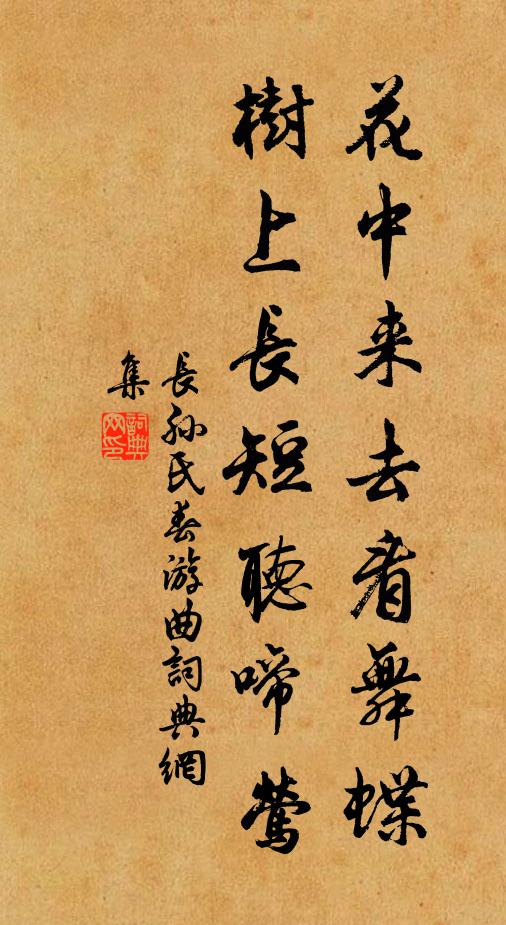 花中来去看舞蝶
樹上長短聽啼鶯
長孫氏春游曲詞典網
集
詞典网印